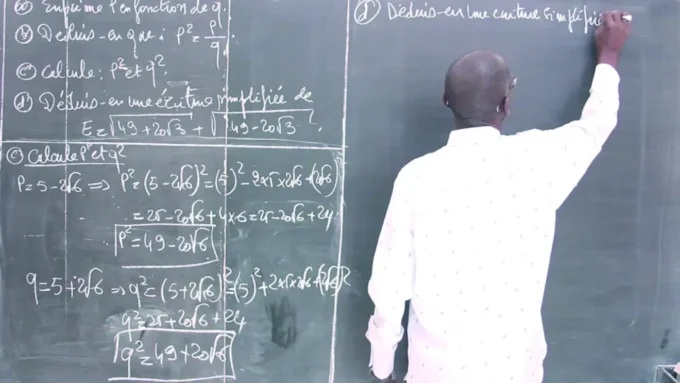 a) Exprime P en fonction de q.
b) Déduis-en que : P² = P/q
c) Calcule : P² et q².
d) Déduis-en une écriture simplifiée de
E = √49 + 20√3 + √49 - 20√3.
c) Calcule P² et q²
P = 5 - 2√6 ⟹ P² = (5 - 2√6)² = (5)² - 2×5×2√6 + (2√6)²
= 25 - 20√6 + 4×6 = 25 - 20√6 + 24
P² = 49 - 20√6
q = 5 + 2√6 ⟹ q² = (5 + 2√6)² = (5)² + 2×5×2√6 + (2√6)²
q² = 25 + 20√6 + 24
q² = 49 + 20√6
d) Déduis-en une écriture simplifiée